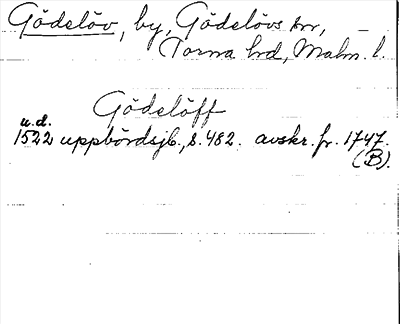 Gödelöv, by, Gödelövs sn, –
Torna hrd, Malm. l.
Gödelöff
u.d.
1522 uppbördsjb., s. 482. avskr. fr. 1747.
(B).